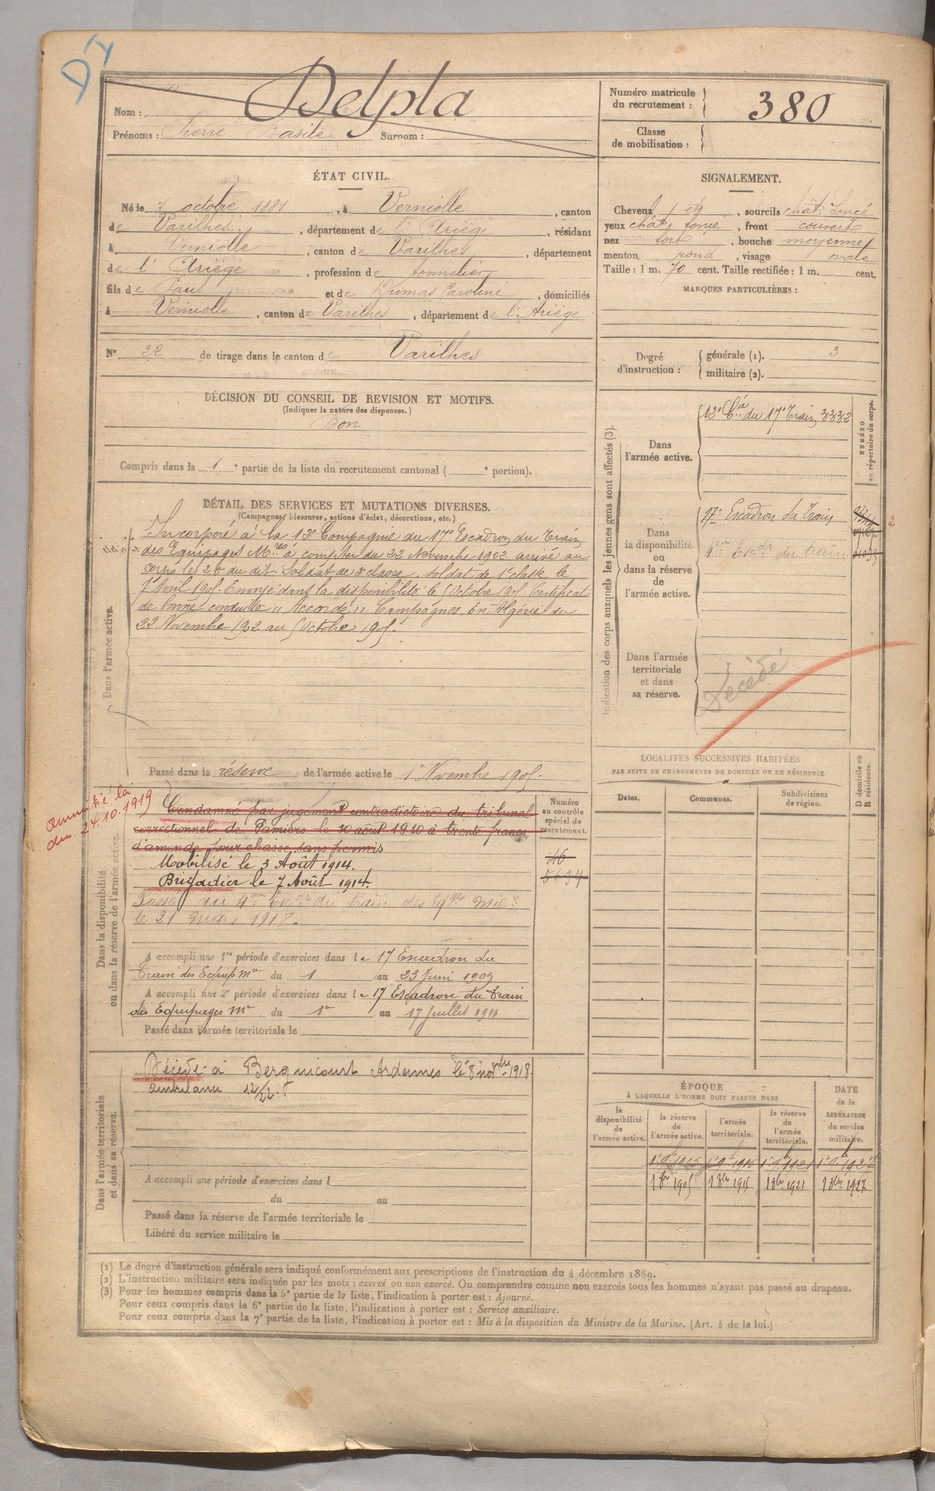 D7
Nom : Delpla
Prénoms : Pierre Basile Surnom :
Numéro matricule du recrutement : 380
Classe de mobilisation :
ÉTAT CIVIL.
Né le 7 octobre 1881, à Verniolle, canton
de Varilhes, département de l'Ariège, résidant
à Verniolle, canton de Varilhes, département
de l'Ariège, profession de tonnelier
fils de Paul et de Dumas Caroline, domiciliés
à Verniolle, canton de Varilhes, département de l'Ariège
N° 22 de tirage dans le canton de Varilhes
SIGNALEMENT.
Cheveux, sourcils chât. foncé
yeux chât. foncé, front couvert
nez fort, bouche moyenne
menton rond, visage ovale
Taille : 1 m. 70 cent. Taille rectifiée : 1 m. cent.
MARQUES PARTICULIÈRES :
Degré d'instruction : générale (1). 3
militaire (2).
DÉCISION DU CONSEIL DE REVISION ET MOTIFS.
(Indiquer la nature des dispenses.)
Bon
Compris dans la 1e partie de la liste du recrutement cantonal ( e portion).
DÉTAIL DES SERVICES ET MUTATIONS DIVERSES.
(Campagnes, blessures, actions d'éclat, décorations, etc.)
Dans l'armée active.
Incorporé à la 13e Compagnie du 17e Escadron du Train
des Équipages Mres à compter du 22 Novembre 1902 arrivé au
corps le dit. Soldat de 2e classe. soldat de 1e classe le
Avril 1905. Envoyé dans la disponibilité le Octobre 1905. Certificat
de bonne conduite "Accordé". Campagnes. En Algérie du
22 Novembre 1902 au Octobre 1905.
Passé dans la réserve de l'armée active le 1 Novembre 1905.
Indication des corps auxquels les jeunes gens sont affectés (3).
NUMÉRO au répertoire du corps.
Dans l'armée active. 13e Cie du 17e Train 3332
Dans la disponibilité ou dans la réserve de l'armée active. 17e Escadron du Train
4eme Esc du train
Dans l'armée territoriale et dans sa réserve. Décédé
amnistié loi
du 24.10.1919
Dans la disponibilité ou dans la réserve de l'armée active.
Condamné par jugement contradictoire du tribunal
correctionnel de Pamiers le 30 août 1910 à trente francs
d'amende pour chasse sans permis
Mobilisé le 3 Août 1914.
Brigadier le 7 Août 1914.
Passé au 4me Escon du train des Eqges Mres
le 21 Mars 1917.
Numéro au contrôle spécial de recrutement.
46
5634
A accompli une 1re période d'exercices dans le 17 Escadron du
Train des Equip Mres du 1 au 23 Juin 1909
A accompli une 2e période d'exercices dans le 17 Escadron du Train
des Equipages Mres du 1er au 17 Juillet 1911
Passé dans l'armée territoriale le
LOCALITÉS SUCCESSIVES HABITÉES
PAR SUITE DE CHANGEMENTS DE DOMICILE OU DE RÉSIDENCE.
Dates. Communes. Subdivisions de région. D domicile ou R résidence.
Dans l'armée territoriale et dans sa réserve.
Décédé à Bergnicourt Ardennes le 8 novbre 1918
ambulance
A accompli une période d'exercices dans l
du au
Passé dans la réserve de l'armée territoriale le
Libéré du service militaire le
ÉPOQUE
À LAQUELLE L'HOMME DOIT PASSER DANS
la disponibilité de l'armée active. la réserve de l'armée active. l'armée territoriale. la réserve de l'armée territoriale. DATE de la LIBÉRATION du service militaire.
1 9bre 1905 1 9bre 1911 1 9bre 1921 1 9bre 1927
(1) Le degré d'instruction générale sera indiqué conformément aux prescriptions de l'instruction du 4 décembre 1889.
(2) L'instruction militaire sera indiquée par les mots : exercé ou non exercé. On comprendra comme non exercés tous les hommes n'ayant pas passé au drapeau.
(3) Pour les hommes compris dans la 5e partie de la liste, l'indication à porter est : Ajourné.
Pour ceux compris dans la 6e partie de la liste, l'indication à porter est : Service auxiliaire.
Pour ceux compris dans la 7e partie de la liste, l'indication à porter est : Mis à la disposition du Ministre de la Marine. (Art. 4 de la loi.)